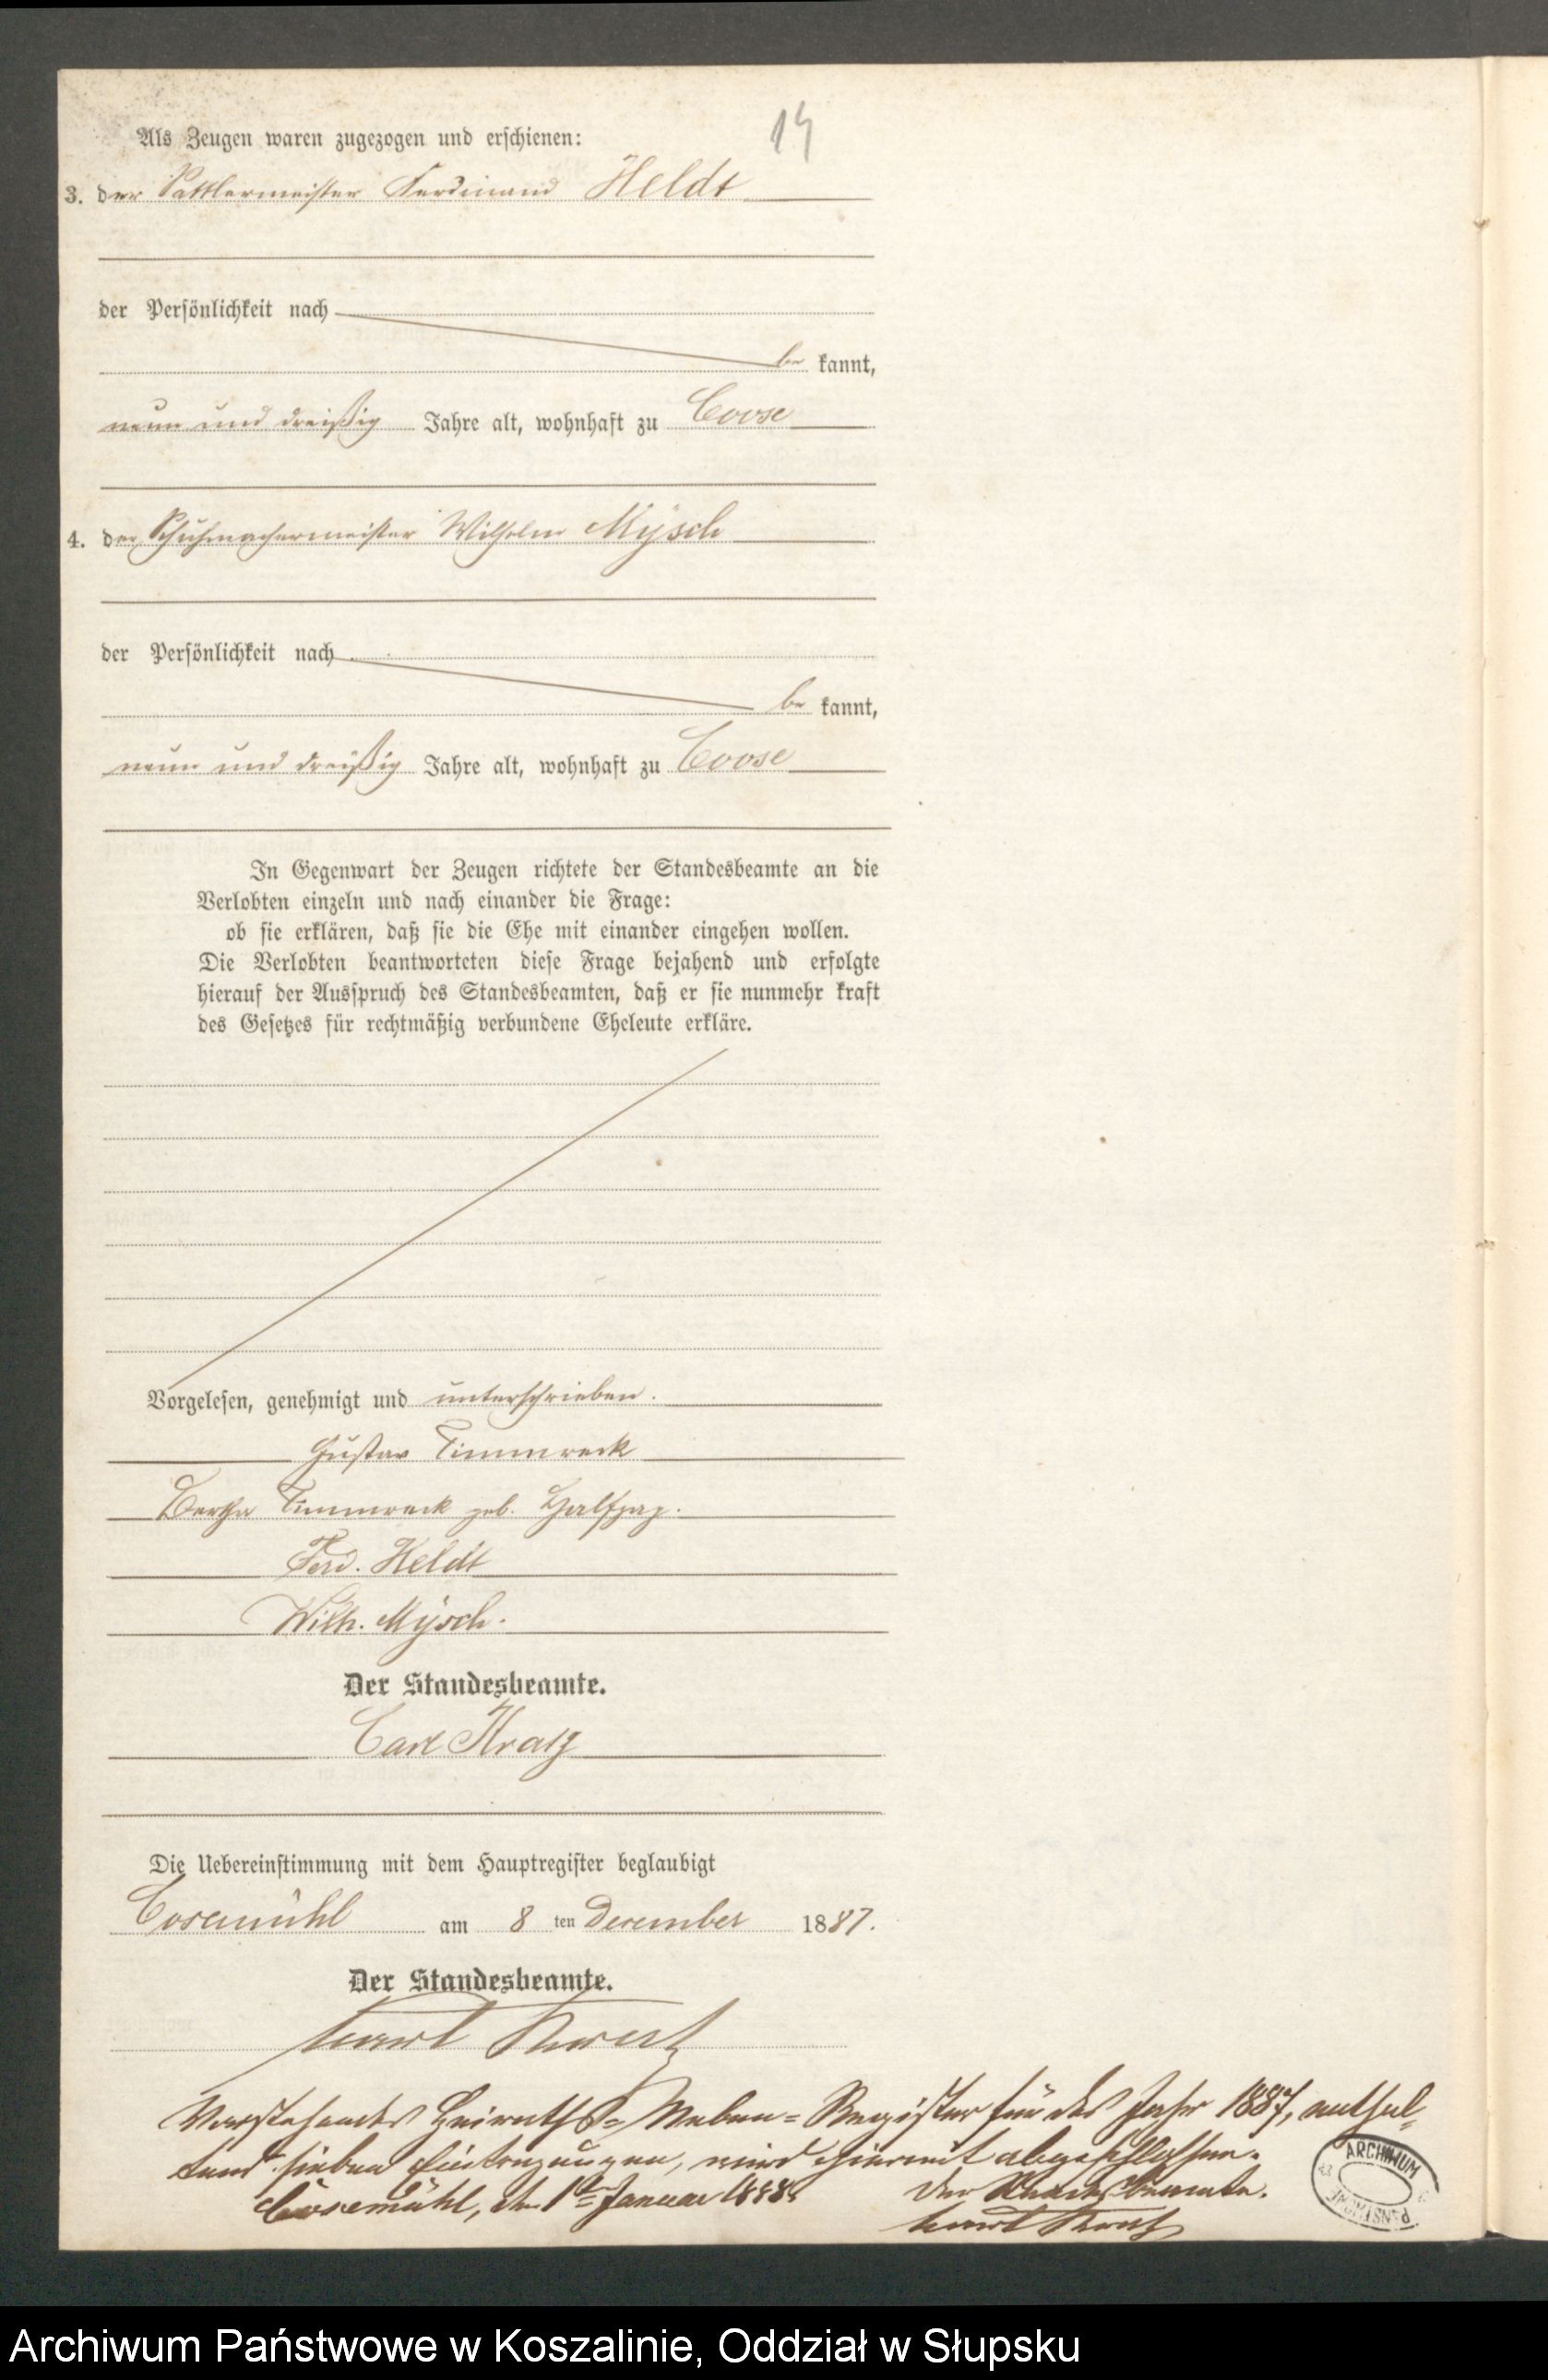 14
Als Zeugen waren zugezogen und erschienen:
3. der Sattlermeister Ferdinand Heldt
der Persönlichkeit nach
be kannt,
neun und dreißig Jahre alt, wohnhaft zu Coose
4. der Schuhmachermeister Wilhelm Mÿsch
der Persönlichkeit nach
be kannt,
neun und dreißig Jahre alt, wohnhaft zu Coose
In Gegenwart der Zeugen richtete der Standesbeamte an die
Verlobten einzeln und nach einander die Frage:
ob sie erklären, daß sie die Ehe mit einander eingehen wollen.
Die Verlobten beantworteten diese Frage bejahend und erfolgte
hierauf der Ausspruch des Standesbeamten, daß er sie nunmehr kraft
des Gesetzes für rechtmäßig verbundene Eheleute erkläre.
Vorgelesen, genehmigt und unterschrieben.
Gustav Timmreck
Bertha Timmreck geb. Halfpap.
Ferd. Heldt
Wilh. Mÿsch.
Der Standesbeamte.
Carl
Die Uebereinstimmung mit dem Hauptregister beglaubigt
Cosemühl am 8 ten December 1887.
Der Standesbeamte.
Carl
Vorstehendes Heiraths-Neben-Register für das Jahr 1887, enthal-
tend sieben Eintragungen, wird hiermit abgeschlossen.
Cosemühl, den 1ten Januar 1888. Der Standesbeamte.
Carl
ARCHIWUM PAŃSTWOWE
Archiwum Państwowe w Koszalinie, Oddział w Słupsku